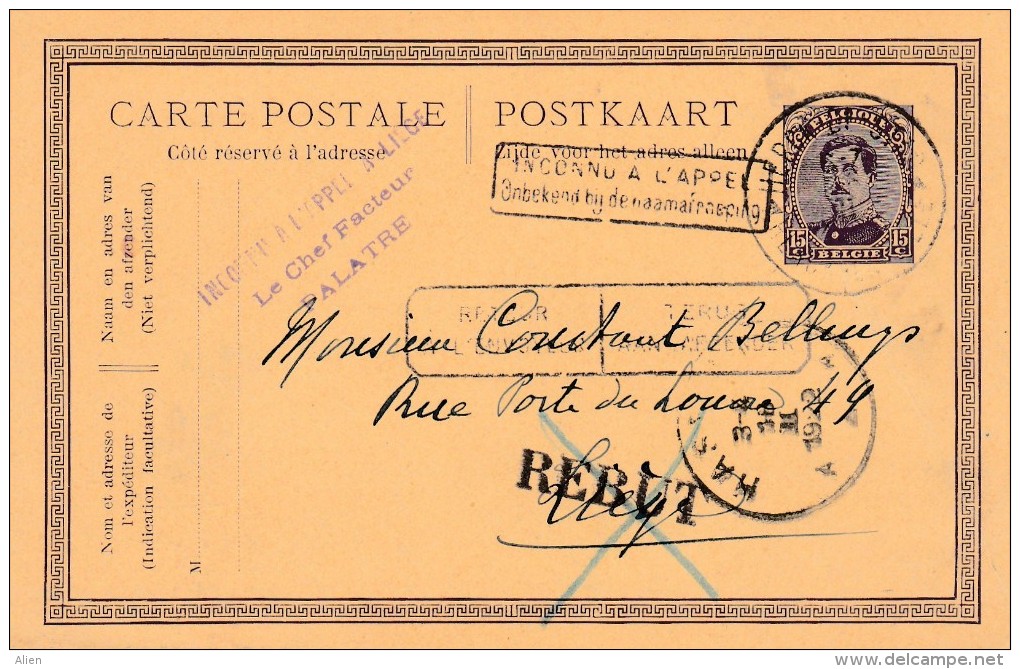 CARTE POSTALE
POSTKAART
Côté réservé à l'adresse
Zijde voor het adres alleen
BELGIQUE
15 C
15 C
BELGIE
INCONNU A L'APPEL
Onbekend bij de naamafroeping
INCONNU A L'APPEL A LIEGE
Le Chef Facteur
PALATRE
RETOUR
TERUG
Monsieur Constant
Rue Porte du 49
Liége
REBUT
3-4
II
1922
A
Naam en adres van
den afzender
(Niet verplichtend)
Nom et adresse de
l'expéditeur
(Indication facultative)
M
Alien
delcampe.net